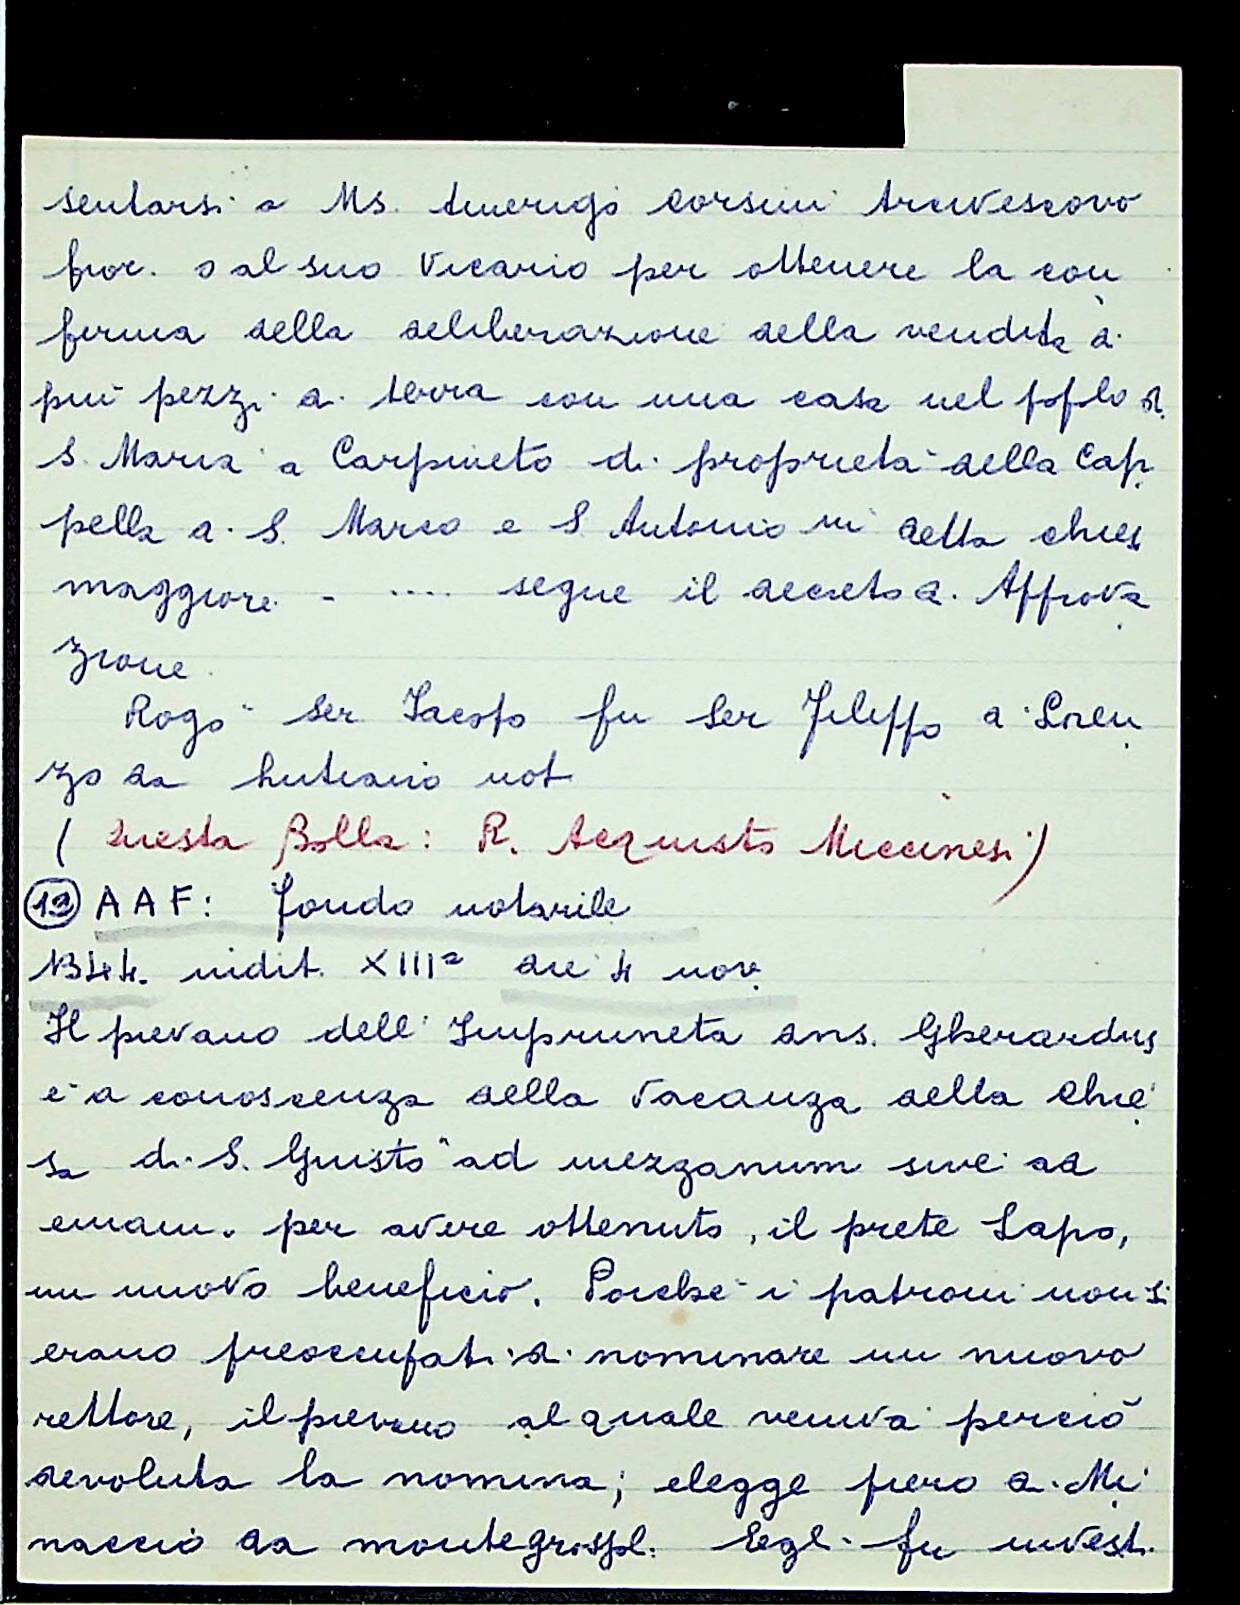 sentarsi a Ms. Amerigo Corsini Arcivescovo
fior. o al suo Vicario per ottenere la con
ferma della deliberazione della vendita di
più pezzi di terra con una casa nel popolo di
S. Maria a Carpineto di proprietà della Cap
pella di S. Marco e S. Antonio in detta chiesa
maggiore - .... segue il decreto di Approva
zione.
Rogò Ser Iacopo fu Ser Filippo di Loren
zo da Lutiano not
( Questa Bolla: R. Acquisto Miccinesi)
12 AAF: fondo notarile
1344. indit. XIIIa die 4 nov.
Il pievano dell'Impruneta dns. Gherardus
è a conoscenza della vacanza della chie
sa di S. Giusto "ad mezzanum sive ad
emam. per avere ottenuto, il prete Lapo,
un nuovo beneficio. Poiché i patroni non si
erano preoccupati di nominare un nuovo
rettore, il pievano al quale veniva perciò
devoluta la nomina; elegge piero di Mi
naccio da montegrossoli. Egli fu invest.